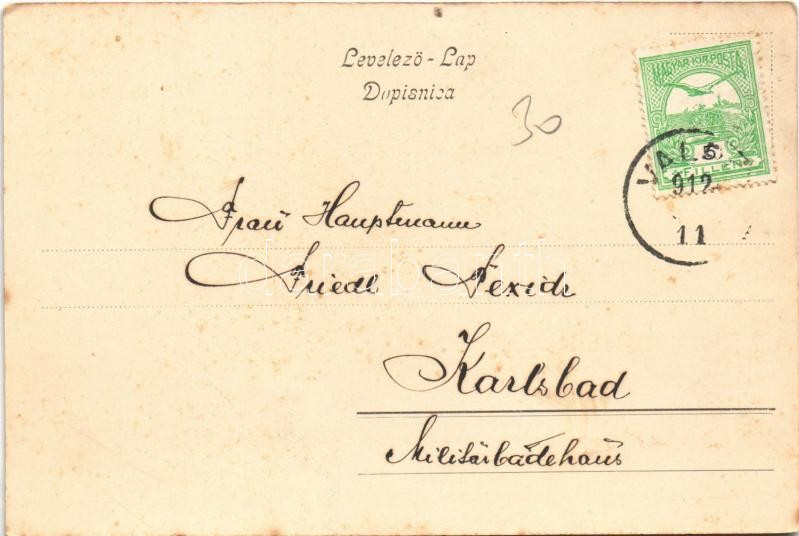 Levelező - Lap
Dopisnica
30
MAGYAR KIR. POSTA
5
FILLÉR
912
11
Frau Hauptmann
Friedl Dexidr
Karlsbad
Militärbadehaus
darabanth